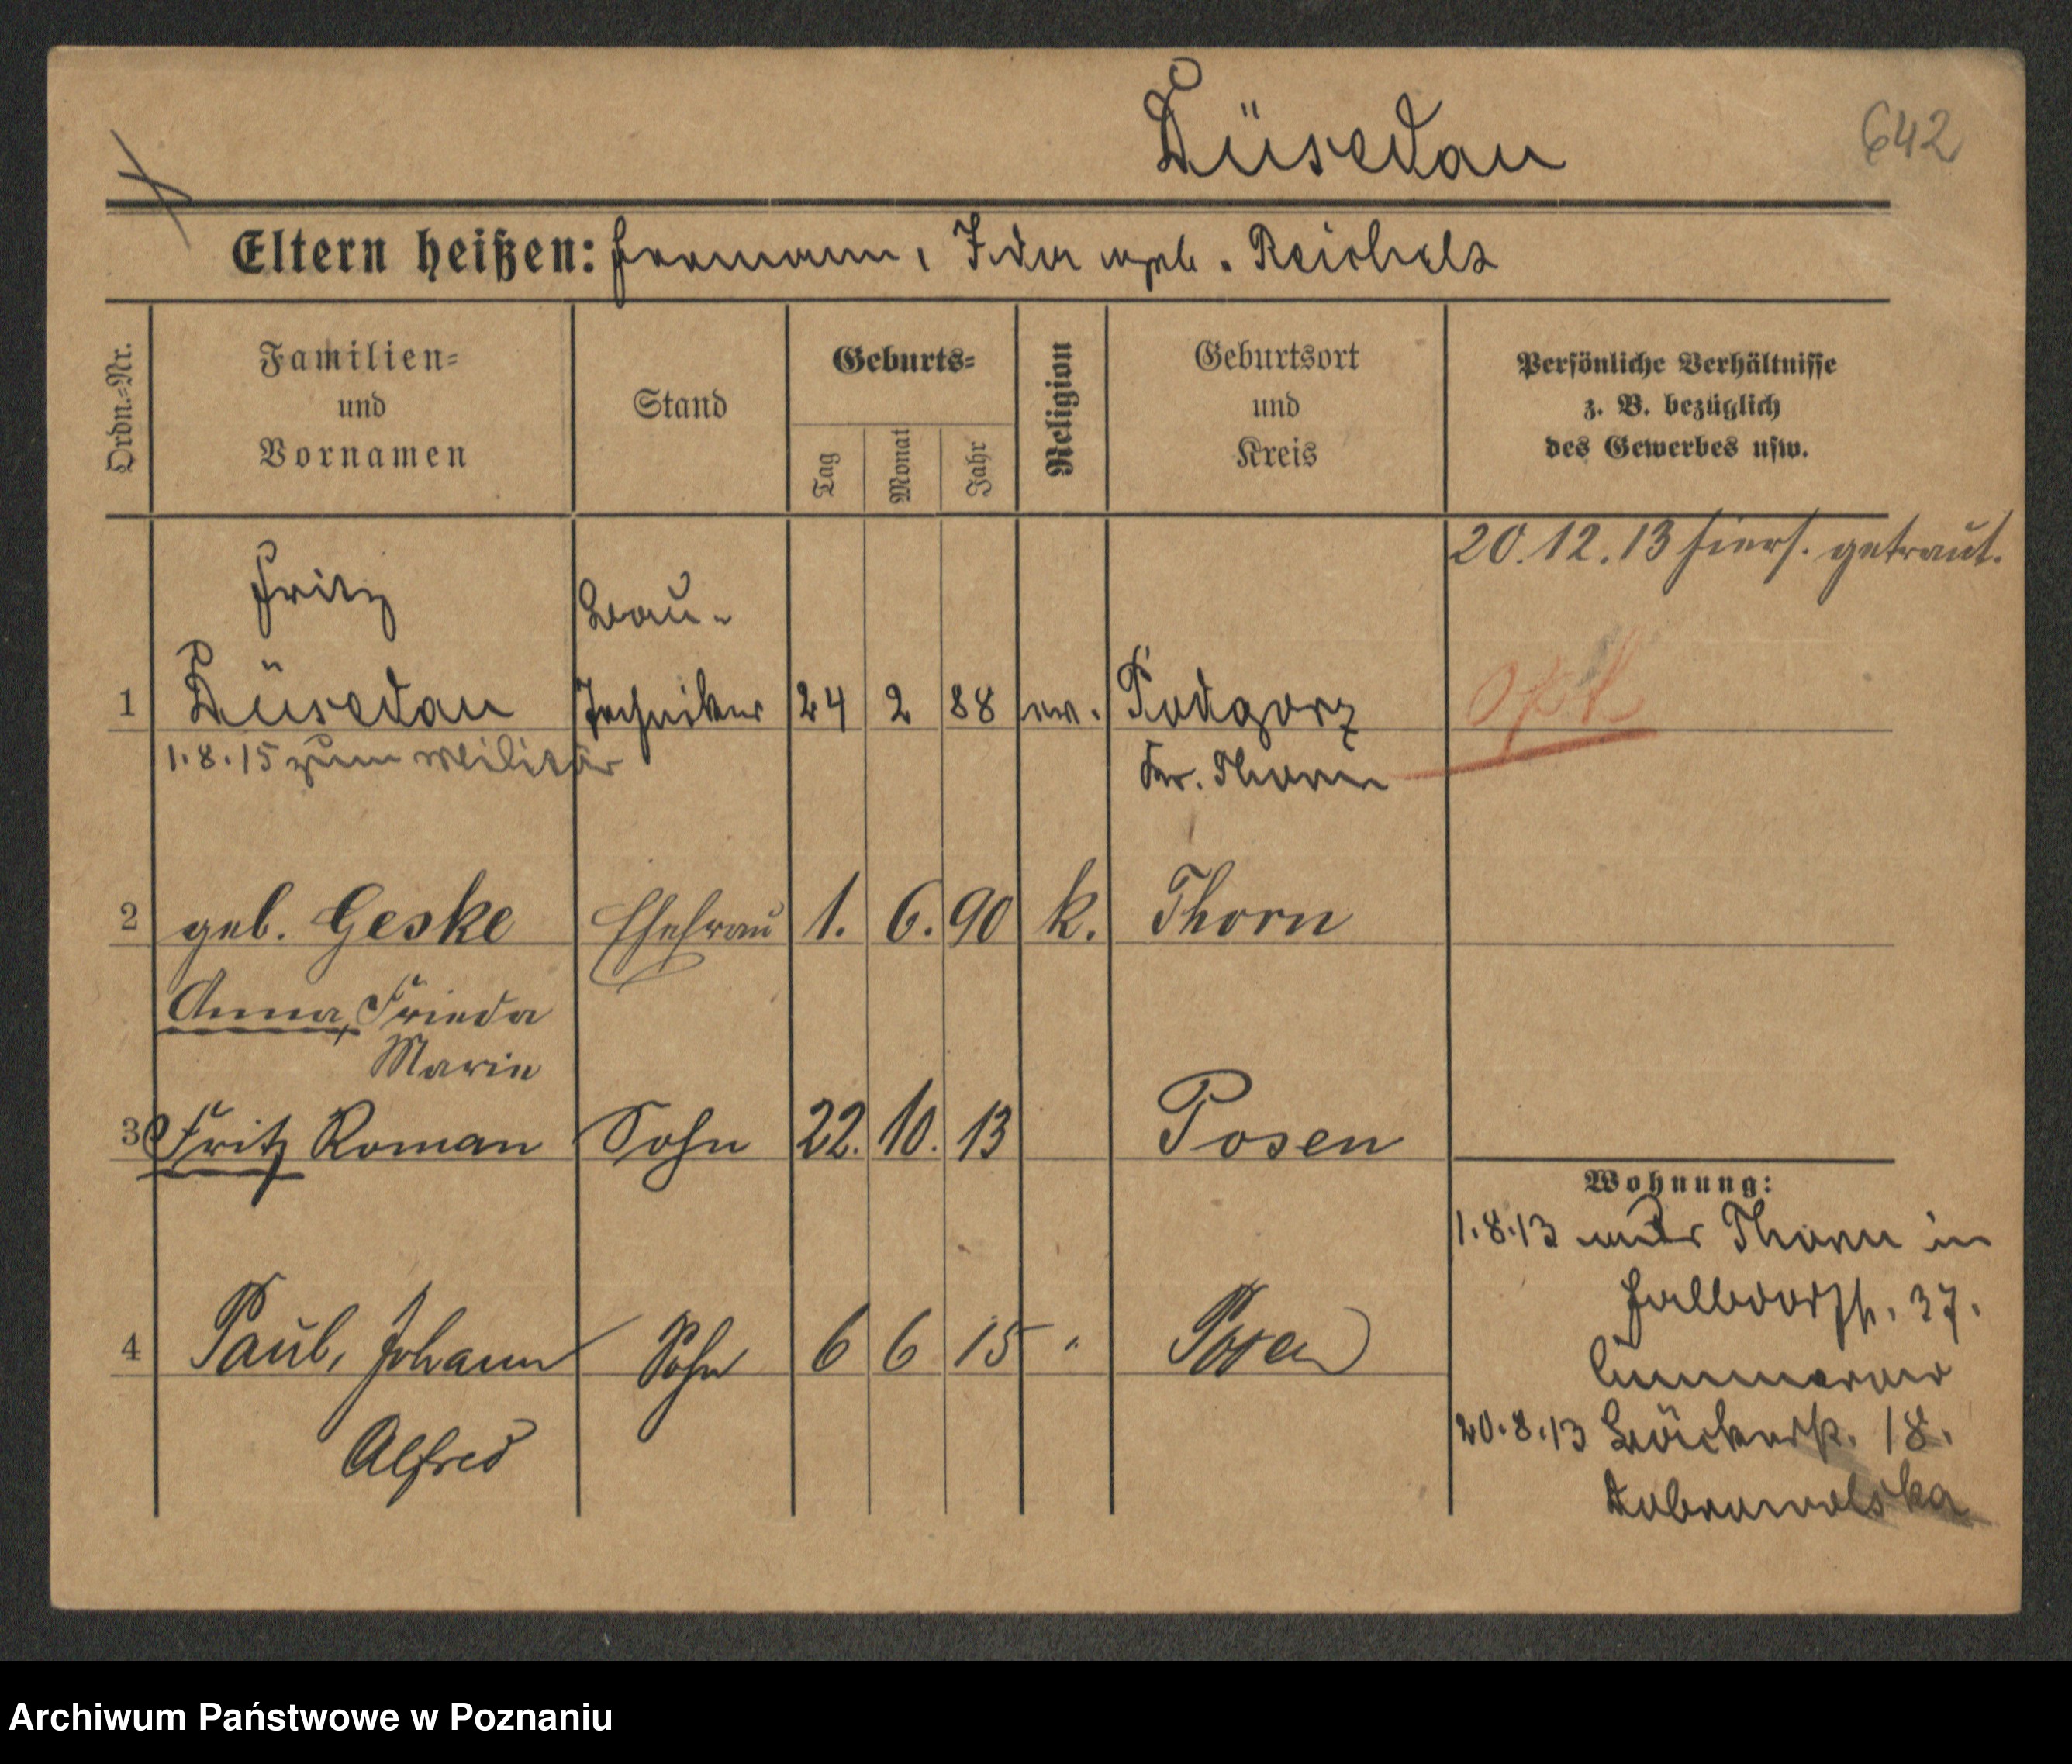 Düsedau
642
Eltern heißen: Hermann, Ida geb. Reichelt
Ordn.-Nr.
Familien-
und
Vornamen
Stand
Geburts-
Tag
Monat
Jahr
Religion
Geburtsort
und
Kreis
Persönliche Verhältnisse
z. B. bezüglich
des Gewerbes usw.
20.12.13 hiers. getraut.
Fritz
Bau-
1 Düsedau Techniker 24 2 88 ev. Podgorz
1.8.15 zum Militär
Kr. Thorn
2 geb. Geske Ehefrau 1. 6. 90 k. Thorn
Anna, Frieda
Marie
3 Fritz Roman Sohn 22. 10. 13 Posen
Wohnung:
1.8.13 Thorn in
Halbdorfstr. 37.
4 Paul, Johann Sohn 6 6 15 " Posen
20.8.13 Bäckerstr. 18.
Alfred
Dobrowolska
Archiwum Państwowe w Poznaniu